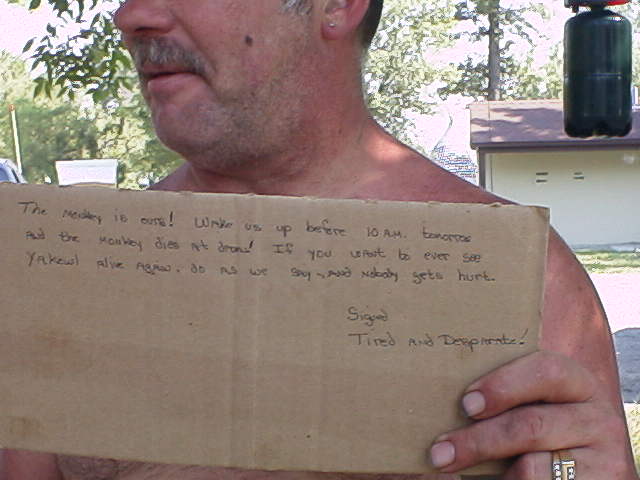 The Monkey is ours! Wake us up before 10 A.M. tomorrow
and the Monkey dies at dawn! If you want to ever see
Yakewl alive again, do as we say, and Nobody gets hurt.
Signed
Tired and Desparate!